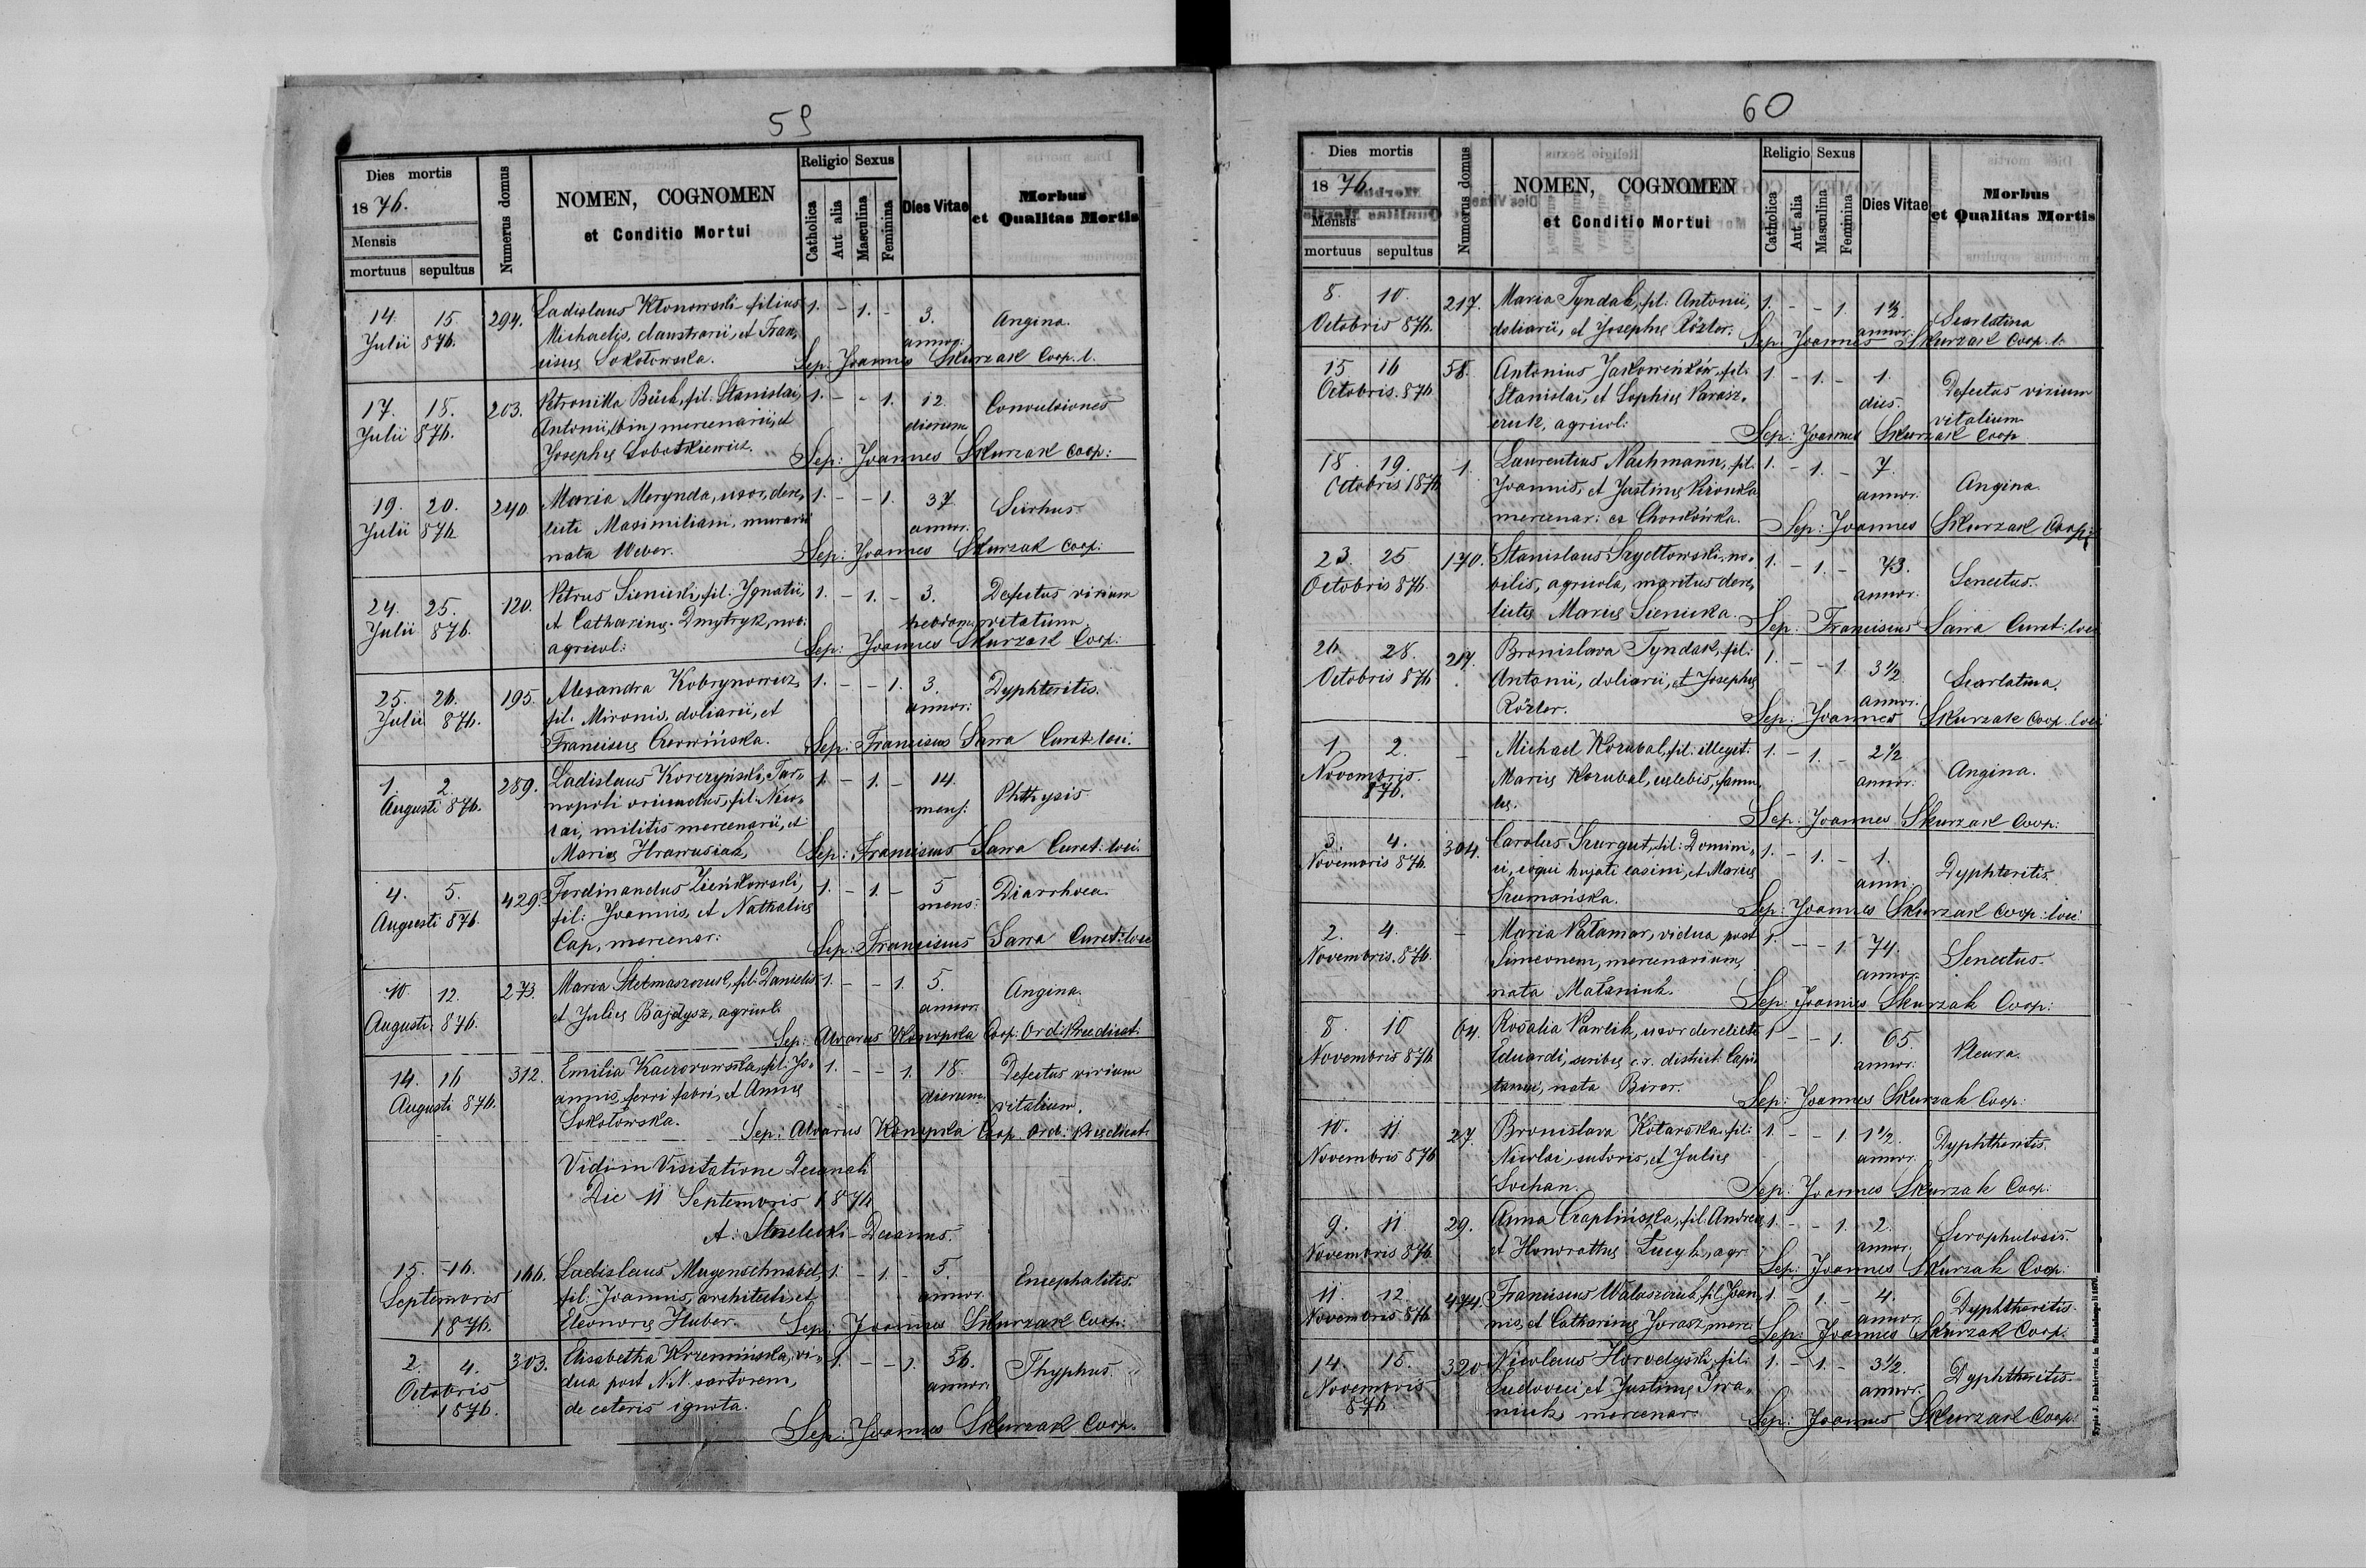 59
Dies mortis
1876.
Mensis
mortuus sepultus
Numerus domus
NOMEN, COGNOMEN
et Conditio Mortui
Religio Sexus
Catholica
Aut alia
Masculina
Feminina
Dies Vitae
Morbus
et Qualitas Mortis
14. 15 294. Ladislaus Kłonowski filius 1. - 1. - 3. Angina.
Julii 876. Michaelis, claustrarii, et Fran, annor:
ciscæ Sokołowska. Sep: Joannes Skurzak Coop. l.
17. 18. 203. Petronilla Büch, fil. Stanislai, 1. - - 1. 12. Convulsiones
Julii 876. Antonii, (bin) mercenarii, et dierum
Josephæ Sobotkiewicz. Sep: Joannes Skurzak Coop:
19. 20. 240. Maria Merynda, uxor, dere, 1. - - 1. 37 Scirhus
Julii 876 licti Maximiliani, murarii annor.
nata Weber. Sep: Joannes Skurzak Coop:
24. 25. 120. Petrus Sienicki, fil. Ignatii, 1. - 1. - 3. Defectus virium
Julii 876. et Catharinæ Dmytryk, nob: hebdom. vitalium.
agricol: Sep: Joannes Skurzak Coop:
25. 26. 195. Alexandra Kobrynowicz, 1. - - 1. 3. Dyphteritis.
Julii 876. fil. Mironis, doliarii, et annor:
Franciscæ Czerwińska. Sep: Franciscus Sawa Curat. loci.
1. 2. 289. Ladislaus Korczyński, Tar, 1. - 1. - 14. Phthysis
Augusti 876. nopoli oriundus, fil. Nico, mens:
lai, militis mercenarii, et
Mariæ Hrawusiak, Sep: Franciscus Sawa Curat: loci.
4. 5. 429. Ferdinandus Zieńkowski, 1. - 1. - 5 Diarrhoea.
Augusti 876. fil: Joannis, et Nathaliæ mens:
Cap, mercenar: Sep: Franciscus Sawa Curat: loci
10. 12. 273. Maria Stelmaszczuk, fil. Danielis 1. - - 1. 5. Angina.
Augusti 876. et Juliæ Bajdysz, agricol. annor.
Sep: Alvarus Konopka Coop: Ord: Prædicat.
14. 16 312. Emilia Kaczorowska, fil. Jo, 1. - - 1. 18. Defectus virium
Augusti 876. annis, ferri fabri, et Annæ dierum. vitalium.
Sokołowska. Sep: Alvarus Konopka Coop. Ord. Prædicat.
Vidi in Visitatione Decanali
Die 11 Septembris 1876
A. Strelecki Decanus.
15. 16. 166. Ladislaus Mugenschnabel, 1. - 1. - 5. Encephalitis.
Septembris fil: Joannis, architecti, et annor.
1876. Eleonoræ Huber. Sep: Joannes Skurzak Coop:
2. 4. 303. Elisabetha Krzemińska, vi, 1. - - 1. 56. Thyphus.
Octobris dua post N.N. sartorem, annor.
1876. de ceteris ignota.
Sep: Joannes Skurzak Coop.
60
Dies mortis
1876.
Mensis
mortuus sepultus
Numerus domus
NOMEN, COGNOMEN
et Conditio Mortui
Religio Sexus
Catholica
Aut alia
Masculina
Feminina
Dies Vitae
Morbus
et Qualitas Mortis
8. 10. 217. Maria Tyndak, fil: Antonii, 1. - - 1. 1½ Scarlatina
Octobris 876. doliarii, et Josephæ Rözler. annor.
Sep: Joannes Skurzak Coop. l.
15 16 58. Antonius Jaskowieńków, fil. 1. - 1. - 1. Defectus virium
Octobris. 876 Stanislai, et Sophiæ Parasz, dies. vitalium
czuk, agricol: Sep: Joannes Skurzak Coop
18. 19. 1. Laurentius Nachmann, fil. 1. - 1. - 7. Angina.
Octobris 1876 Joannis, et Justinæ annor.
mercenar: ex Chorkówka. Sep: Joannes Skurzak Coop:
23. 25 170. Stanislaus Szydłowski, no, 1. - 1. - 73. Senectus.
Octobris 876. bilis, agricola, maritus dere, annor.
lictæ Mariæ Sienicka. Sep: Franciscus Sawa Curat: loci
26. 28. 217. Bronislava Tyndak, fil: 1. - - 1. 3½ Scarlatina.
Octobris 876 Antonii, doliarii, et Josephæ annor.
Rözler. Sep: Joannes Skurzak Coop. loci
1. 2. - Michael Kozubal, fil: illegit. 1. - 1. - 2½ Angina.
Novembris. Mariæ Kozubal, cælebis, famu, annor:
876. læ. Sep: Joannes Skurzak Coop:
3. 4. 304. Carolus Szurgut, fil: Domini, 1. - 1. - 1. Dyphteritis.
Novembris 876. ci, coqui hujati casini, et Mariæ anni
Szumańska. Sep: Joannes Skurzak Coop: loci
2. 4. - Maria Patamar, vidua post 1. - - 1. 74. Senectus.
Novembris. 876. Simeonem, mercenarium, annor.
nata Mataniuk. Sep: Joannes Skurzak Coop:
8. 10 64. Rosalia Pawlik, uxor derelicta 1 - - 1. 65. Pleura.
Novembris 876 Eduardi, scribæ c.r. district. Capi annor.
taneu, nata Birar. Sep: Joannes Skurzak Coop:
10. 11 27. Bronislava Kotarska, fil: 1. - - 1. 1½. Dyphtheritis.
Novembris 876 Nicolai, sutoris, et Juliæ annor.
Sochan. Sep: Joannes Skurzak Coop:
9. 11. 29. Anna Czaplińska, fil. Andreæ 1. - - 1. 2. Scrophulosis.
Novembris 876. et Honorattæ, agr. annor.
Sep: Joannes Skurzak Coop:
11. 12. 474. Franciscus Wałaszczuk, fil. Joan, 1. - 1. - 4. Dyphtheritis.
Novembris 876 nis, et Catharinæ Jorasz, merc: annor.
Sep: Joannes Skurzak Coop:
14. 15. 320 Nicolaus Horodyski, fil: 1. - 1. - 3½. Dyphtheritis
Novembris Ludovici, et Justinæ Iwa, annor.
876. niuk, mercenar. Sep: Joannes Skurzak Coop:
Typis J. Dankiewicz, in Stanislaopoli 1870.